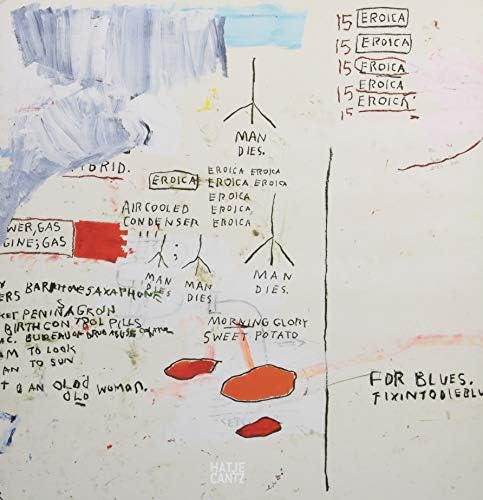 15 EROICA
15 EROICA
15 EROICA
15 EROICA
15 EROICA
MAN
DIES.
YBRID.
EROICA
EROICA EROICA
EROICA EROICA
EROICA
EROICA
EROICA
AIRCOOLED
CONDENSER
WER, GAS
GINE; GAS
;
MAN
DIES
MAN
DIES
MAN
DIES.
ERS BARITONE SAXAPHONE
S
KET PENINAGROIN
BIRTHCONTROL PILLS
MC. BUREAU OF DRUG ABUSE
AM TO LOOK
AN TO SUN.
T O AN OLDO
OLD WOMAN.
MORNING GLORY
SWEET POTATO
FOR BLUES.
FIXINTODIEBLU
HATJE
CANTZ